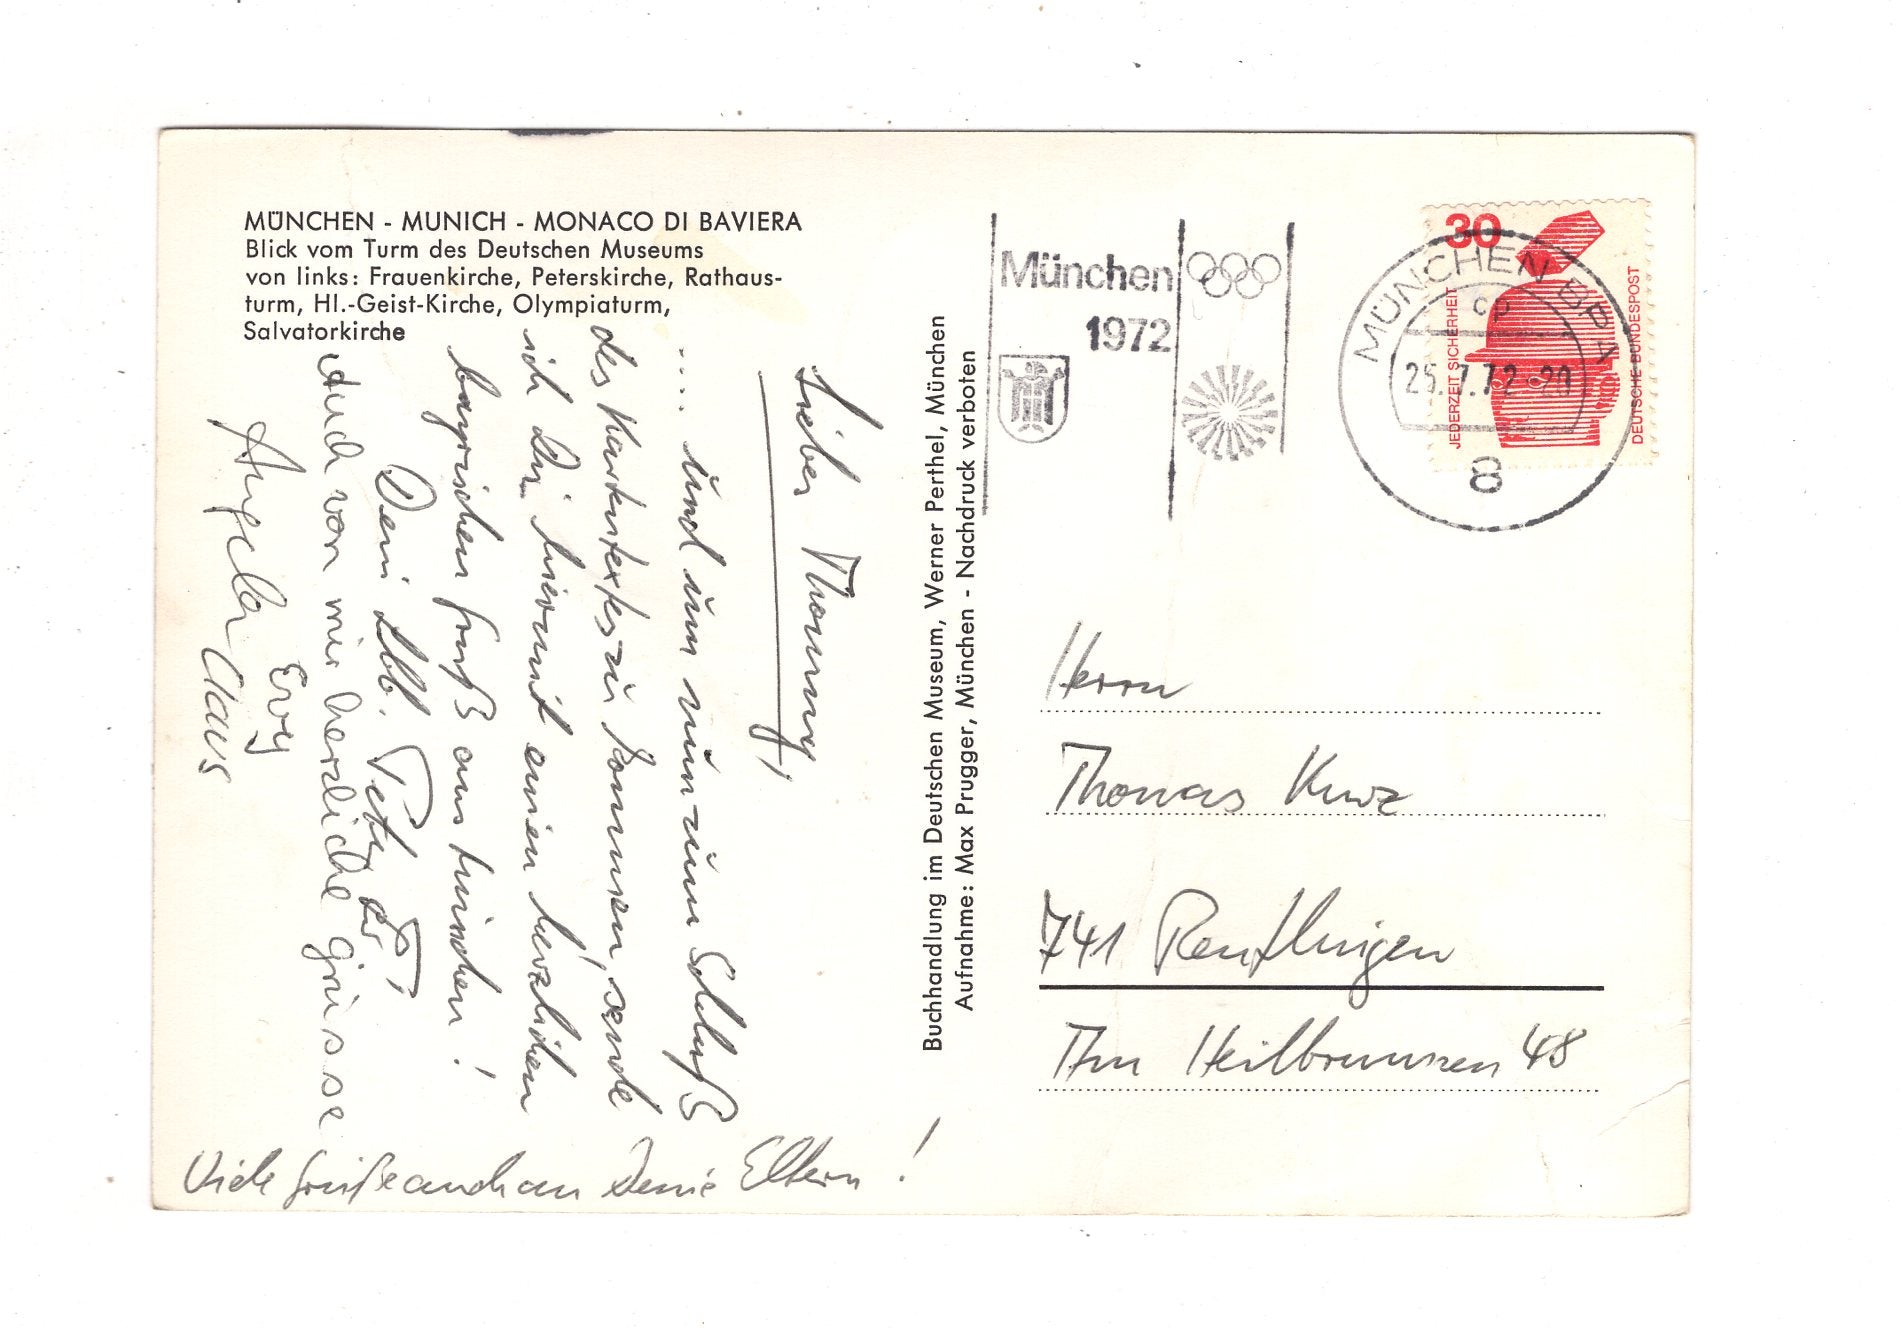 MÜNCHEN - MUNICH - MONACO DI BAVIERA
Blick vom Turm des Deutschen Museums
von links: Frauenkirche, Peterskirche, Rathaus-
turm, Hl.-Geist-Kirche, Olympiaturm,
Salvatorkirche
Lieber Thommy,
.... und um nun - zum Schluß
des Kartentextes zu kommen, sende
ich Dir hiermit einen herzlichen
bayrischen Gruß aus München!
Dein
Auch von mir herzliche Grüsse
Evy
Angela Claus
Viele Grüße auch an Deine Eltern!
Buchhandlung im Deutschen Museum, Werner Perthel, München
Aufnahme: Max Prugger, München - Nachdruck verboten
München
1972
MÜNCHEN BPA
cp
25.7.72-20
8
30
JEDERZEIT SICHERHEIT
DEUTSCHE BUNDESPOST
Herrn
Thomas Kurz
741 Reutlingen
Am Heilbrunnen 48